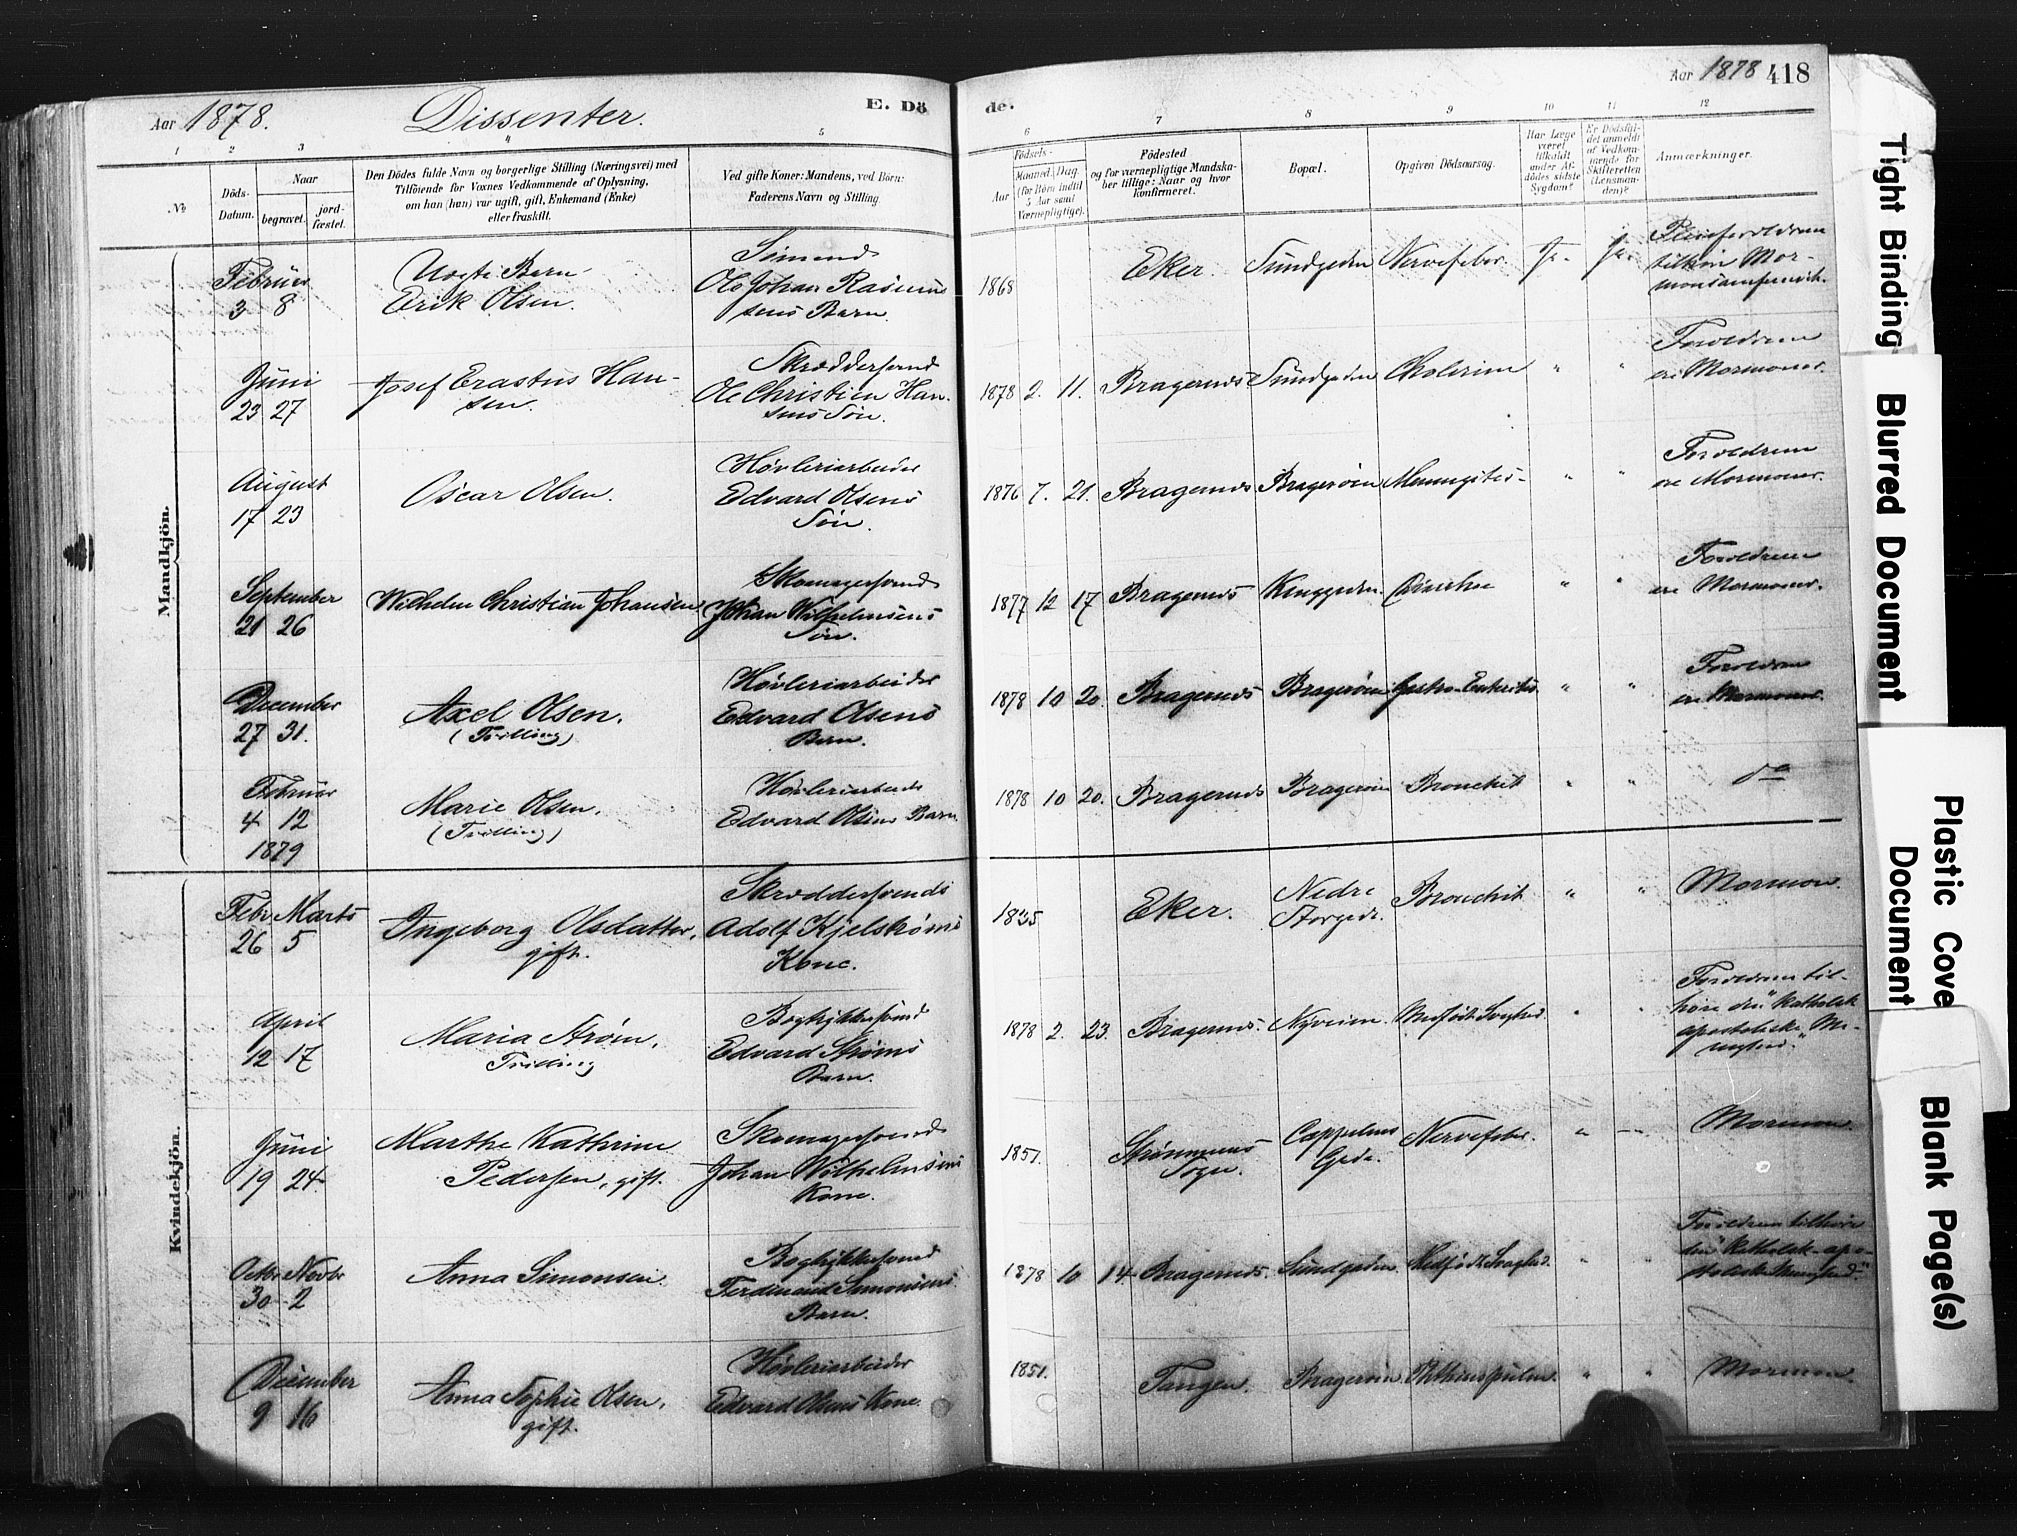 Aar 1878.
Dissenter.
E. Dö
de.
Aar 1878
418
1 2 3 4 5
6 7 8 9 10 11 12
No
Döds-Datum.
Naar
begravet.
jord-fæstet.
Den Dödes fulde Navn og borgerlige Stilling (Næringsvei) med
Tilföiende for Voxnes Vedkommende af Oplysning,
om han (hun) var ugift, gift, Enkemand (Enke)
eller fraskilt.
Ved gifte Koner: Mandens, ved Börn:
Faderens Navn og Stilling.
Födsels-
Aar
Maaned.
Dag.
(for Börn indtil
5 Aar samt
Værnepligtige).
Födested
og for værnepligtige Mandska-
ber tillige: Naar og hvor
konfirmeret.
Bopæl.
Opgiven Dödsaarsag.
Har Læge
været
tilkaldt
under Af-
dödes sidste
Sygdom?
Er Dödsfal-
det anmeldt
af Vedkom-
mende for
Skifteretten
(Lensman-
den)?
Anmærkninger.
Mandkjön.
Februar
3 8
Uægte Barn
Erik Olsen.
Sömand
Ole Johan Rasmus
sens Barn.
1868
Eker.
Sundgaden
Nervefeber
Ja.
Ja.
tilhøre Mor-
monsamfundet.
Juni
23 27
Josef Erastus Han-
sen.
Skræddersvend
Ole Christian Han-
sens Søn.
1878 2. 11.
Bragernæs
Sundgaden
Cholerine
"
"
Forældrene
ere Mormoner.
August
17 23
Oscar Olsen.
Høvleriarbeider
Edvard Olsens
Søn.
1876 7. 21.
Bragernæs
Bragerøen
Meningites
"
"
Forældrene
ere Mormoner.
September
21 26
Wilhelm Christian Johansen
Skomagersvend
Johan Wilhelmsens
Søn.
1877 12 17
Bragernæs
Konggaden
Diarrhee
"
"
Forældrene
ere Mormoner.
December
27 31.
Axel Olsen.
(Trilling)
Høvleriarbeider
Edvard Olsens
Barn.
1878 10 20.
Bragernæs
Bragerøen
Gastro-Enterites.
"
"
Forældrene
ere Mormoner.
Februar
4 12
1879
Marie Olsen.
(Trilling)
Høvleriarbeider
Edvard Olsens Barn.
1878 10 20.
Bragernæs
Bragerøen
Bronchit
"
"
do
Kvindekjön.
Febr. Marts
26 5
Ingeborg Olsdatter,
gift.
Skræddersvends
Adolf Kjelstrøms
Kone.
1835
Eker.
Nedre
Storgade.
Bronchit
"
"
Mormon.
April
12 17
Maria Strøm,
Trilling
Bogtykkersvend
Edvard Strøms
Barn.
1878 2. 23.
Bragernæs.
Nyveien.
Medfødt Svaghed.
"
"
Forældrene til-
høre den "katholsk
apostoliske Me-
nighed."
Juni
19 24
Marthe Kathrine
Pedersen, gift.
Skomagersvend
Johan Wilhelmsens
Kone.
1851.
Strømmens
Sogn.
Cappelens
Gade.
Nervefeber.
"
"
Mormon.
Octbr. Novbr
30 2
Anna Simonsen.
Bogtykkersvend
Ferdinand Simonsens
Barn.
1878 10 14
Bragernæs.
Sundgaden.
Medfødt Svaghed.
"
"
Forældrene tilhøre
den "katholsk-apo-
stoliske Menighed."
December
9 16
Anna Sophie Olsen,
gift.
Høvleriarbeider
Edvard Olsens Kone.
1851.
Tangen.
Bragerøen.
Phthisis pulm.
"
"
Mormon.
Tight Binding
Blurred Document
Plastic Cove
Document
Blank Page(s)